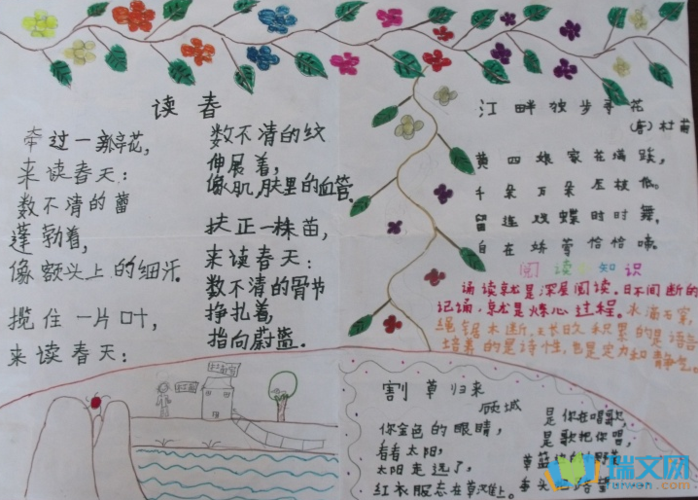 读春
牵过一瓣花,
来读春天:
数不清的蕾
蓬勃着,
像额头上的细汗
揽住一片叶,
来读春天:
数不清的纹
伸展着,
像肌肤里的血管.
扶正一株苗,
来读春天:
数不清的骨节
挣扎着,
指向蔚蓝.
江畔独步寻花
(唐)杜甫
黄四娘家花满蹊,
千朵万朵压枝低。
留连戏蝶时时舞,
自在娇莺恰恰啼。
阅读小知识
诵读就是深层阅读.日不间断的
记诵,就是炼心过程。水滴石穿,
绳锯木断,天长日久积累的是语言
培养的是诗性,也是定力和静气。
割草归来
顾城
你金色的眼睛,
看着太阳,
太阳走远了,
红衣服忘在草滩上。
是你在唱歌
是歌把你唱,
草篮
瑞文网
ruiwen.com